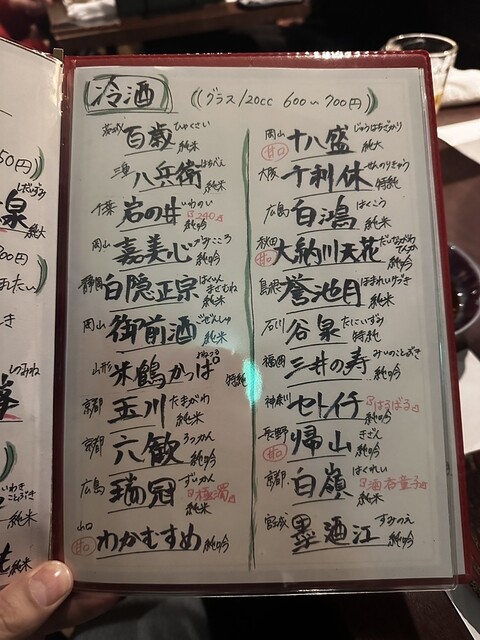 冷酒
(グラス/120cc 600〜700円)
茨城 百歳 ひゃくさい 純米
三重 八兵衛 はちべえ 純米
千葉 岩の井 いわのい 純吟
岡山 嘉美心 かみこころ 純吟
静岡 白隠正宗 はくいんまさむね 純米
岡山 御前酒 ごぜんしゅ 純米
山形 米鶴かっぱ よねつる 特純
京都 玉川 たまがわ 純米
京都 六歓 ろっかん 純吟
広島 瑞冠 ずいかん 純吟
山口 甘口 わかむすめ 純吟
岡山 甘口 十八盛 じゅうはちざかり 純大
大阪 千利休 せんのりきゅう 特純
広島 白鴻 はくこう 純米
秋田 甘口 大納川天花 だいながわてんか 純吟
島根 誉池月 ほまれいけづき 純米
石川 谷泉 たにいずみ 特純
福岡 三井の寿 みいのことぶき 純吟
神奈川 セトイチ はるばる 純吟
長野 甘口 帰山 きざん 純吟
京都 白嶺 はくれい 純米
宮城 墨廼江 すみのえ 純吟
50円)
泉
純大
00円)
純米
純米